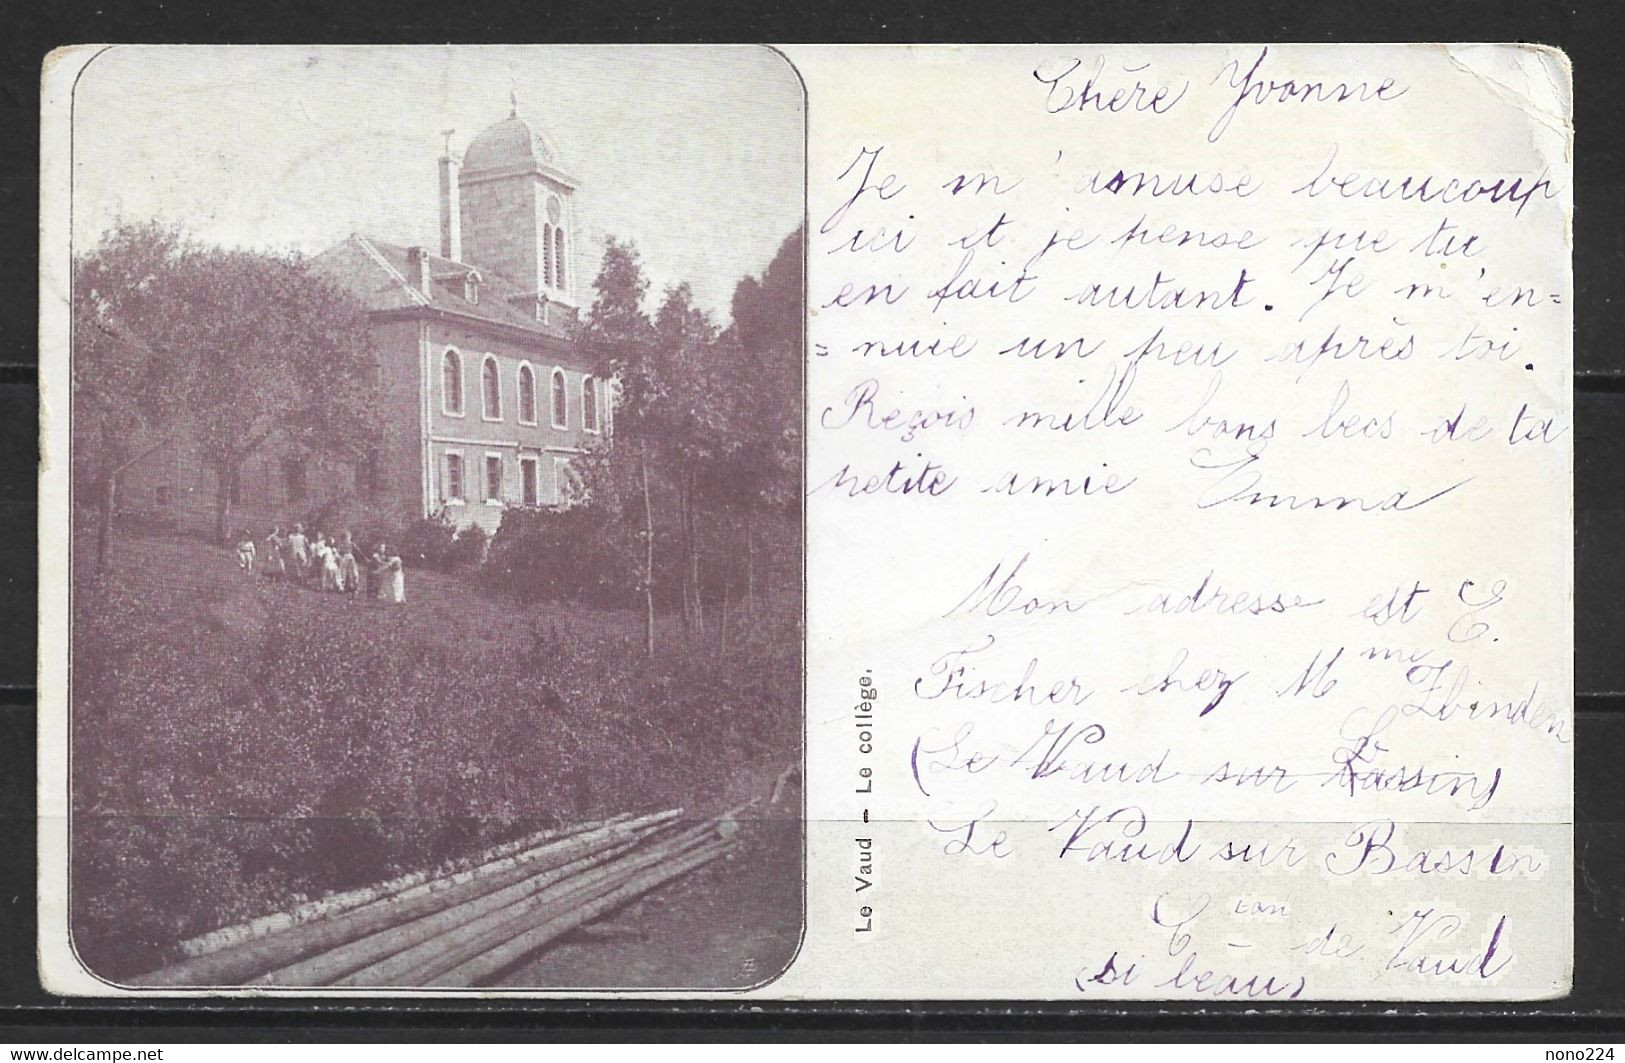 Chère Yvonne
Je m'amuse beaucoup
ici et je pense que tu
en fait autant. Je m'en=
=nuie un peu après toi.
Reçois mille bons becs de ta
petite amie Emma
Mon adresse est E.
Fischer chez Mme Zbinden
(Le Vaud sur Bassin)
Le Vaud sur Bassin
Cton de Vaud
(si beau)
Le Vaud - Le collège.
delcampe.net
nono224